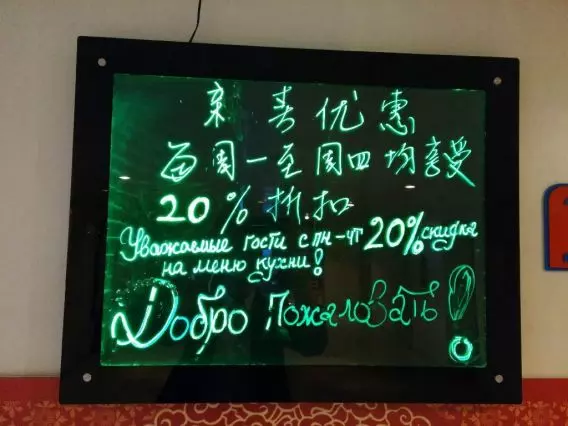 新春优惠
每周一至周四均享受
20%折扣
Уважаемые гости с пн-чт 20% скидка
на меню кухни!
Добро Пожаловать!